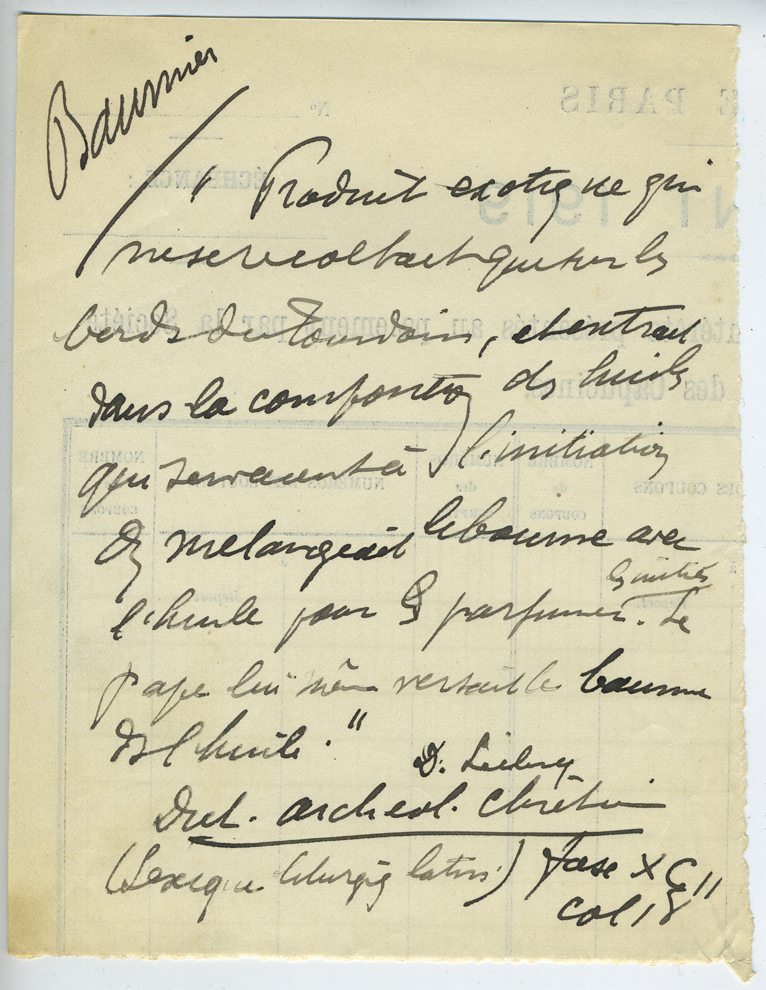 Baumier
" Produit exotique qui
ne se recoltait que sur les
bords du Jourdain, et entrait
dans la composition ds huiles
qui servaient à l'initiation
On melangeait le baume avec
les initiés
l'huile pour les parfumer. Le
Pape lui même versait le baume
ds l'huile."
D. Leclercq
Dict. archeol. Chrétien
(Lexique liturgiq latin) Fasc X
col 18
E PARIS
N°
ÉCHÉANCE :
1919
au paiement par la Société
des Capucines.
NOMBRE
COUPONS
NUMÉROS
NOMBRE
de
COUPONS
DES COUPONS